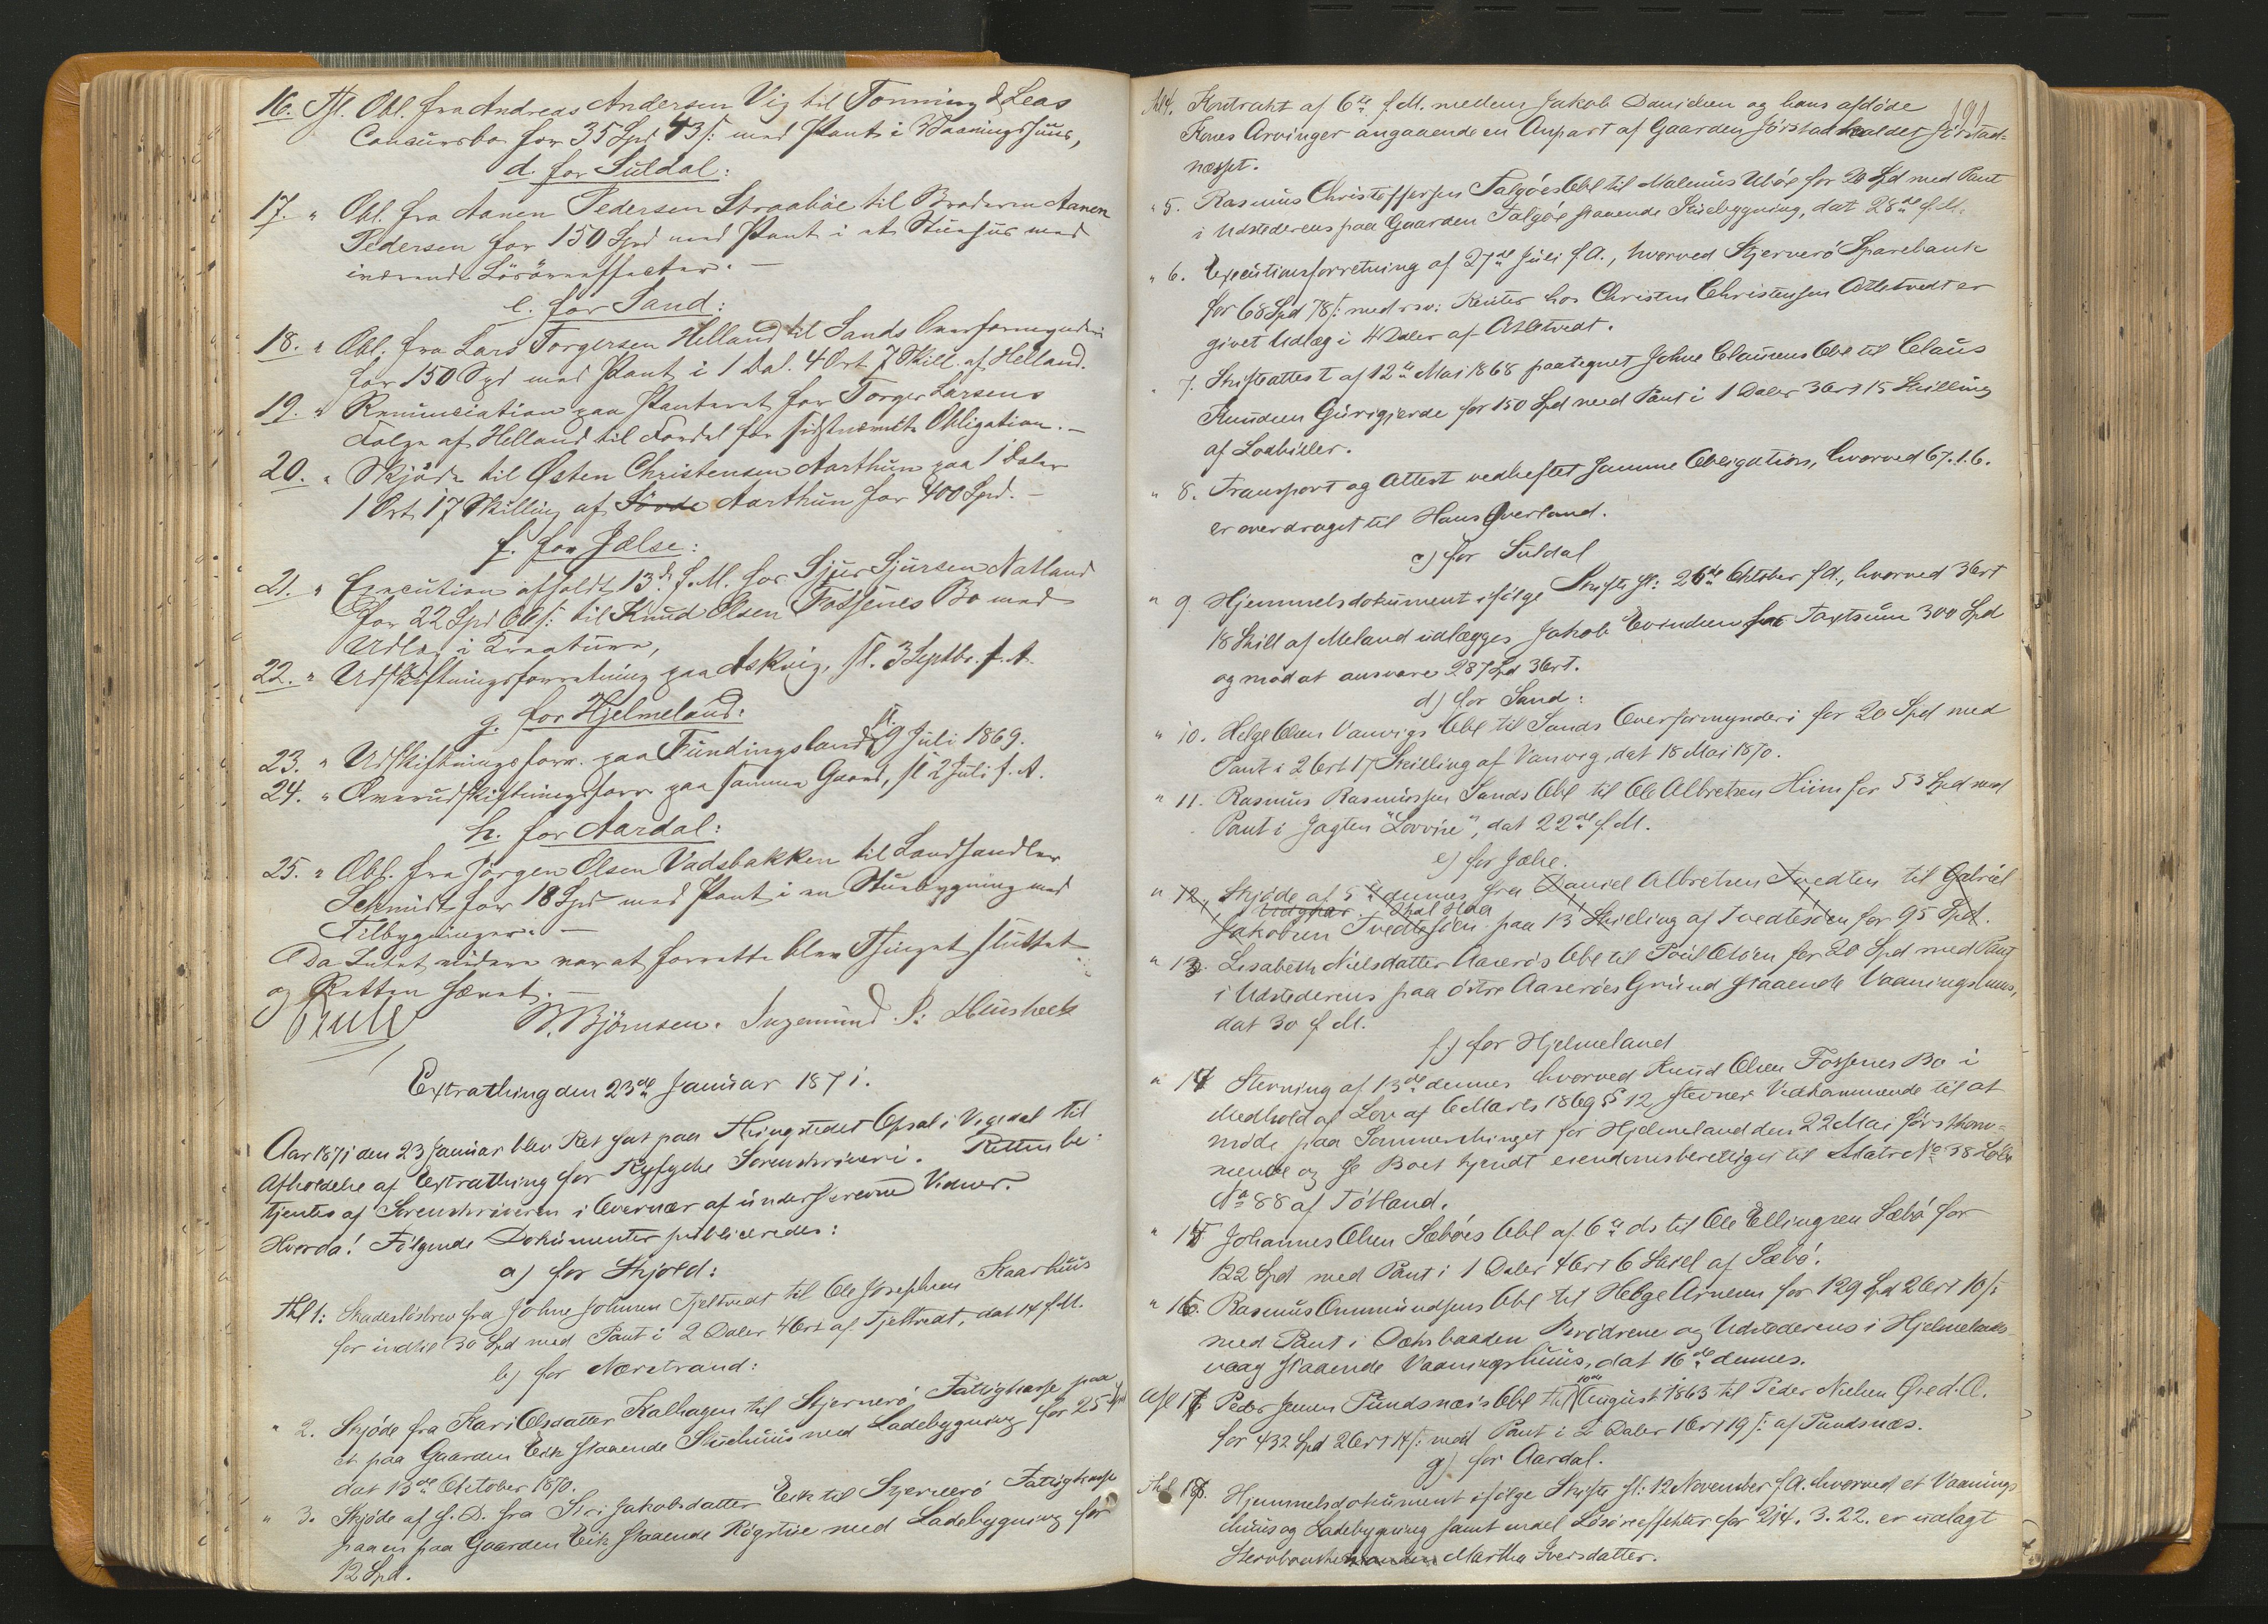 16. Thl. Obl. fra Andreas Andersen Vig til Tonning & Leas
Concursbo for 35 Spd 43 s: med Pant i Vaaningshuus,
d. for Suldal:
17. " Obl. fra Aanen Pedersen Straabøe til Broderen Aanen
Pedersen for 150 Spd med Pant i et Stuehus med
iværende Løsøreeffecter. —
e. for Sand:
18. " Obl. fra Lars Torgersen Helland til Sands Overformynderi
for 150 Spd med Pant i 1 Dal. 4 Ort 7 Skill af Helland.
19. " Renunciation paa Panteret for Torger Larsens
Folge af Helland til Fordel for sidstnævnte Obligation. —
20. " Skjøde til Østen Christensen Aarthun paa 1 Daler
1 Ort 17 Skilling af Aarthun for 400 Spd. —
f. for Jælse:
21. " Execution afholdt 13de f. M. hos Sjur Sjursen Natland
for 22 Spd 66 s: til Knud Olsen Fossenes Bo med
Udlæg i Kreature,
22. " Udskiftningsforretning paa Askvig, sl. 3 Septbr. f. A.
g. for Hjelmeland:
23. " Udskiftningsforr. paa Fundingsland sl. 9 Juli 1869.
24. " Overudskiftningsforr. paa samme Gaard, sl 2 Juli f. A.
h. for Aardal:
25. " Obl. fra Jørgen Olsen Vadsbakken til Landhandler
Schmidt for 18 Spd med Pant i en Stuebygning med
Tilbygninger. —
Da Intet videre var at forrette blev Thinget sluttet
og Retten hævet. —
B. Bjørnsen. Ingemund S:
Extrathing den 23de Januar 1871.
Aar 1871 den 23 Januar blev Ret sat paa Thingstedet Opsal i Vigedal til
Afholdelse af Extrathing for Ryfylke Sorenskriveri. Retten be-
tjentes af Sorenskriveren i Overvær af underskrevne Vidner.
Hvorda! Følgende Dokumenter publiceredes:
a) for Skjold:
Thl 1: Skadesløsbrev fra Johne Johnsen Tjeltvedt til Ole Josephsen Skaarhuus
for indtil 30 Spd med Pant i 2 Daler 4 Ort af Tjeltvedt, dat 14 f. M.
b) for Nærstrand:
" 2. Skjøde fra Kari Olsdatter Kalhagen til Stjernerø Fattigkasse paa
et paa Gaarden Eik staaende Stuehuus med Ladebygning for 25 Spd
dat 13de Oktober 1870.
" 3. Skjøde af s. D. fra Siri Jakobsdatter Eik til Stjernerø Fattigkasse
paa en paa Gaarden Eik staaende Røgstue med Ladebygning for
12 Spd.
191
Thl 4. Kontrakt af 6te f. M. mellem Jakob Danielsen og hans afdøde
Kones Arvinger angaaende en Anpart af Gaarden Jørstad kaldet Jørstad-
næsset.
" 5. Rasmus Christoffersen Talgøes Obl til Malenius Ubøe for 20 Spd med Pant
i Udstederens paa Gaarden Talgøe staaende Stuebygning, dat 28de f. M.
" 6. Executionsforretning af 27de Juli f. A., hvorved Stjernerø Sparebank
for 68 Spd 78 s: med Renter hos Christen Christensen Atletvedt er
givet Udlæg i 4 Daler af Atletvedt.
" 7. Skifteattest af 12te Mai 1868 paategnet Johne Clausens Obl til Claus
Knudsen Gurigjerde for 150 Spd med Pant i 1 Daler 3 Ort 15 Skilling
af Lodhiller.
" 8. Transport og Attest vedheftet samme Obligation, hvorved 67. 1. 6.
er overdraget til Hans Qverland.
c) for Suldal
" 9 Hjemmelsdokument ifølge Skifte sl: 26de Oktober f. A., hvorved 3 Ort
18 Skill af Meland udlægges Jakob Evindsen for Taxtsum 300 Spd
og mod at ansvare 287 Spd 3 Ort.
d) for Sand:
" 10. Helge Olsen Vanvigs Obl til Sands Overformynderi for 20 Spd med
Pant i 2 Ort 17 Skilling af Vanvig, dat 18 Mai 1870.
" 11. Rasmus Rasmussen Sands Obl til Ole Albretsen Hiim for 53 Spd med
Pant i Jagten "Lovvise", dat 22de f. M.
e) for Jælse.
" 12, Skjøde af 5te dennes fra Daniel Albretsen Tvedten til Gabriel
Udgaar. Skal staa
Jakobsen Tvedtesøen paa 13 Skilling af Tvedtesøen for 95 Spd.
" 13. Lisabeth Nielsdatter Aaserøs Obl til Poul Olsøen for 20 Spd med Pant
i Udstederens paa østre Aaserøes Grund staaende Vaaningshuus,
dat 30 f. M.
f) for Hjelmeland
" 14 Stevning af 13de dennes hvorved Knud Olsen Fossenes Bo i
Medhold af Lov af 6 Marts 1869 § 12 stevner Vedkommende til at
møde paa Sommerthinget for Hjelmeland den 22 Mai førstkom-
mende og se Boet kjendt eiendomsberettiget til Matr No 38 Løbe
No 88 af Tøtland.
" 15 Johannes Olsen Sæbøes Obl af 6te ds til Ole Ellingsen Sæbø for
122 Spd med Pant i 1 Daler 4 Ort 6 Skill af Sæbø.
" 16. Rasmus Ommundsens Obl til Helge Arnesen for 129 Spd 2 Ort 10 s:
med Pant i Dæksbaaden Brødrene og Udstederens i Hjelmelands-
vaag staaende Vaaningshuus, dat 16de dennes.
Afl 17 Peder Jensen Pundsnæs's Obl thl 10de August 1863 til Peder Nielsen Qved. A.
for 432 Spd 2 Ort 14 s: med Pant i 2 Daler 1 Ort 19 s: af Pundsnæs.
g) for Aardal.
Thl 18. Hjemmelsdokument ifølge Skifte sl: 12 November f. A. hvorved et Vaanings-
huus og Ladebygning samt endel Løsøreeffekter for 214. 3. 22. er udlagt
Martha Iversdatter.